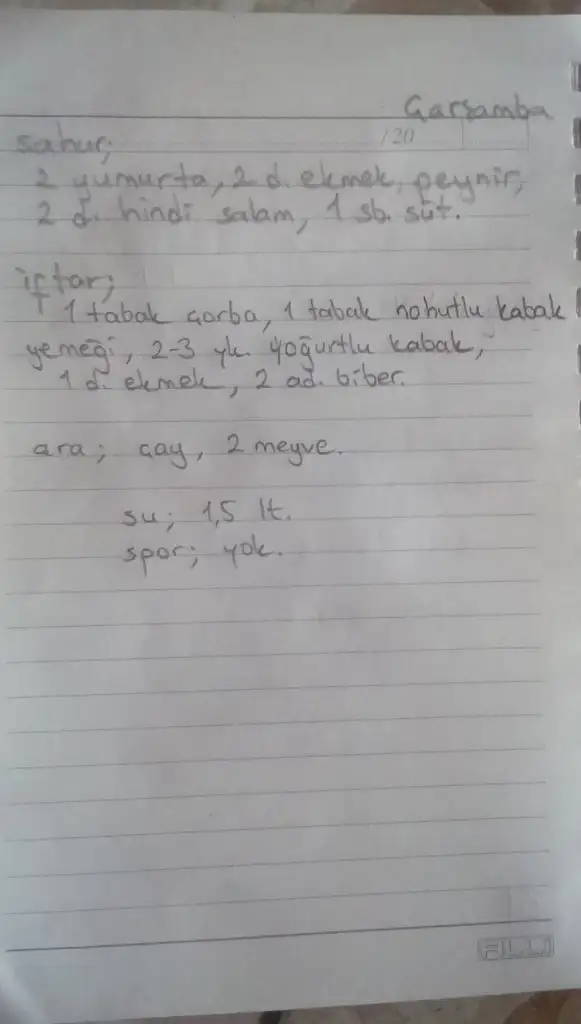 Çarşamba
/20
sahur;
2 yumurta, 2 d. ekmek, peynir,
2 d. hindi salam, 1 sb. süt.
iftar;
1 tabak çorba, 1 tabak nohutlu kabak
yemeği, 2-3 yk. yoğurtlu kabak,
1 d. ekmek, 2 ad. biber.
ara; çay, 2 meyve.
su; 1,5 lt.
spor; yok.